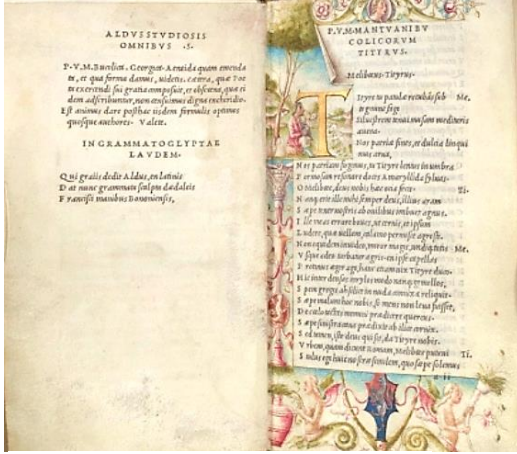 ALDVS STVDIOSIS
OMNIBVS .S.
P. V. M. Bucolica. Georgica. Aeneida quam emenda
ta, et qua forma damus, uidetis. cætera, quæ Poe
ta exercendi sui gratia composuit, et obscena, quæ ei
dem adscribuntur, non censuimus digna enchiridio.
Est animus dare posthac iisdem formulis optimos
quosque authores. Valete.
IN GRAMMATOGLYPTAE
LAVDEM.
Qui graiis dedit Aldus, en latinis
Dat nunc grammata scalpta dædaleis
Francisci manibus Bononiensis.
P. V. M. MANTVANI BV
COLICORVM
TITYRVS.
Melibœus. Tityrus.
Tityre tu patulæ recubãs sub Me.
tegmine fagi
Siluestrem tenui musam meditaris
auena.
Nos patriæ fines, et dulcia linqui
mus arua,
Nos patriam fugimus, tu Tityre lentus in umbra
Formosam resonare doces Amaryllida syluas.
O Melibœe, deus nobis hæc ocia fecit. Ti.
Nanque erit ille mihi semper deus, illius aram
Sæpe tener nostris ab ouilibus imbuet agnus.
Ille meas errare boues, ut cernis, et ipsum
Ludere, quæ uellem, calamo permisit agresti.
Non equidem inuideo, miror magis, undique totis Me.
Vsque adeo turbatur agris. en ipse capellas
Protinus æger ago, hanc etiam uix Tityre duco.
Hic inter densas corylos modo nanque gemellos,
Spem gregis ah silice in nuda connixa reliquit.
Sæpe malum hoc nobis, si mens non leua fuisset,
De cœlo tactas memini prædicere quercus.
Sæpe sinistra caua prædixit ab ilice cornix.
Sed tamen, iste deus qui sit, da Tityre nobis.
Vrbem, quam dicunt Romam, Melibœe putaui Ti.
Stultus ego huic nostræ similem, quo sæpe solemus